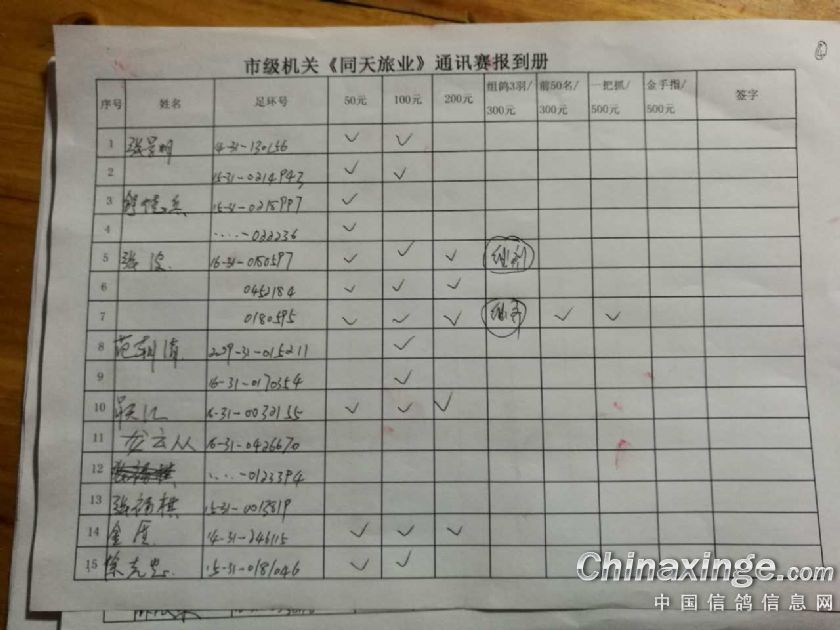 市级机关《同天旅业》通讯赛报到册
序号 姓名 足环号 50元 100元 200元 组鸽3羽/300元 前50名/300元 一把抓/500元 金手指/500元 签字
1 张景明 14-31-130156 ✓ ✓
2 15-31-0214943 ✓ ✓
3 15-31-0218997 ✓
4 ·····-022236 ✓
5 张波 16-31-0180597 ✓ ✓ ✓
6 0452184 ✓ ✓ ✓
7 0180595 ✓ ✓ ✓ ✓ ✓
8 范朝清 2009-31-015211 ✓
9 16-31-0170354 ✓
10 16-31-0032155 ✓ ✓ ✓
11 龙云从 16-31-0426670
12 ····-0123394
13 张福棋 15-31-0013819
14 14-31-246115 ✓ ✓ ✓
15 徐克忠 15-31-0181046 ✓ ✓
Chinaxinge.com
中国信鸽信息网